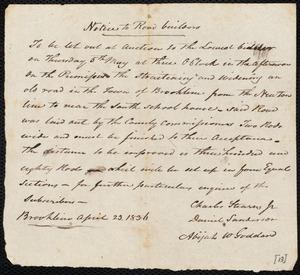 Notice to Road builders
To be let out at Auction to the Lowest bidder
on Thursday 5th May at three O Clock in the afternoon
on the Premises the Straitening and widening an
old road in the Town of Brookline from the Newton
line to near the South School house Said Road
was laid out by the County Commissioners Two Rods
wide and must be finished to their Acceptance
the distance to be improved is three hundred and
eighty Rods which will be set up in four Equal
Sections – for further particulars enquire of the
Subscribers –
Charles Stearns Jr
Brookline April 23. 1836 Daniel Sanderson
Abijah W Goddard
[13]